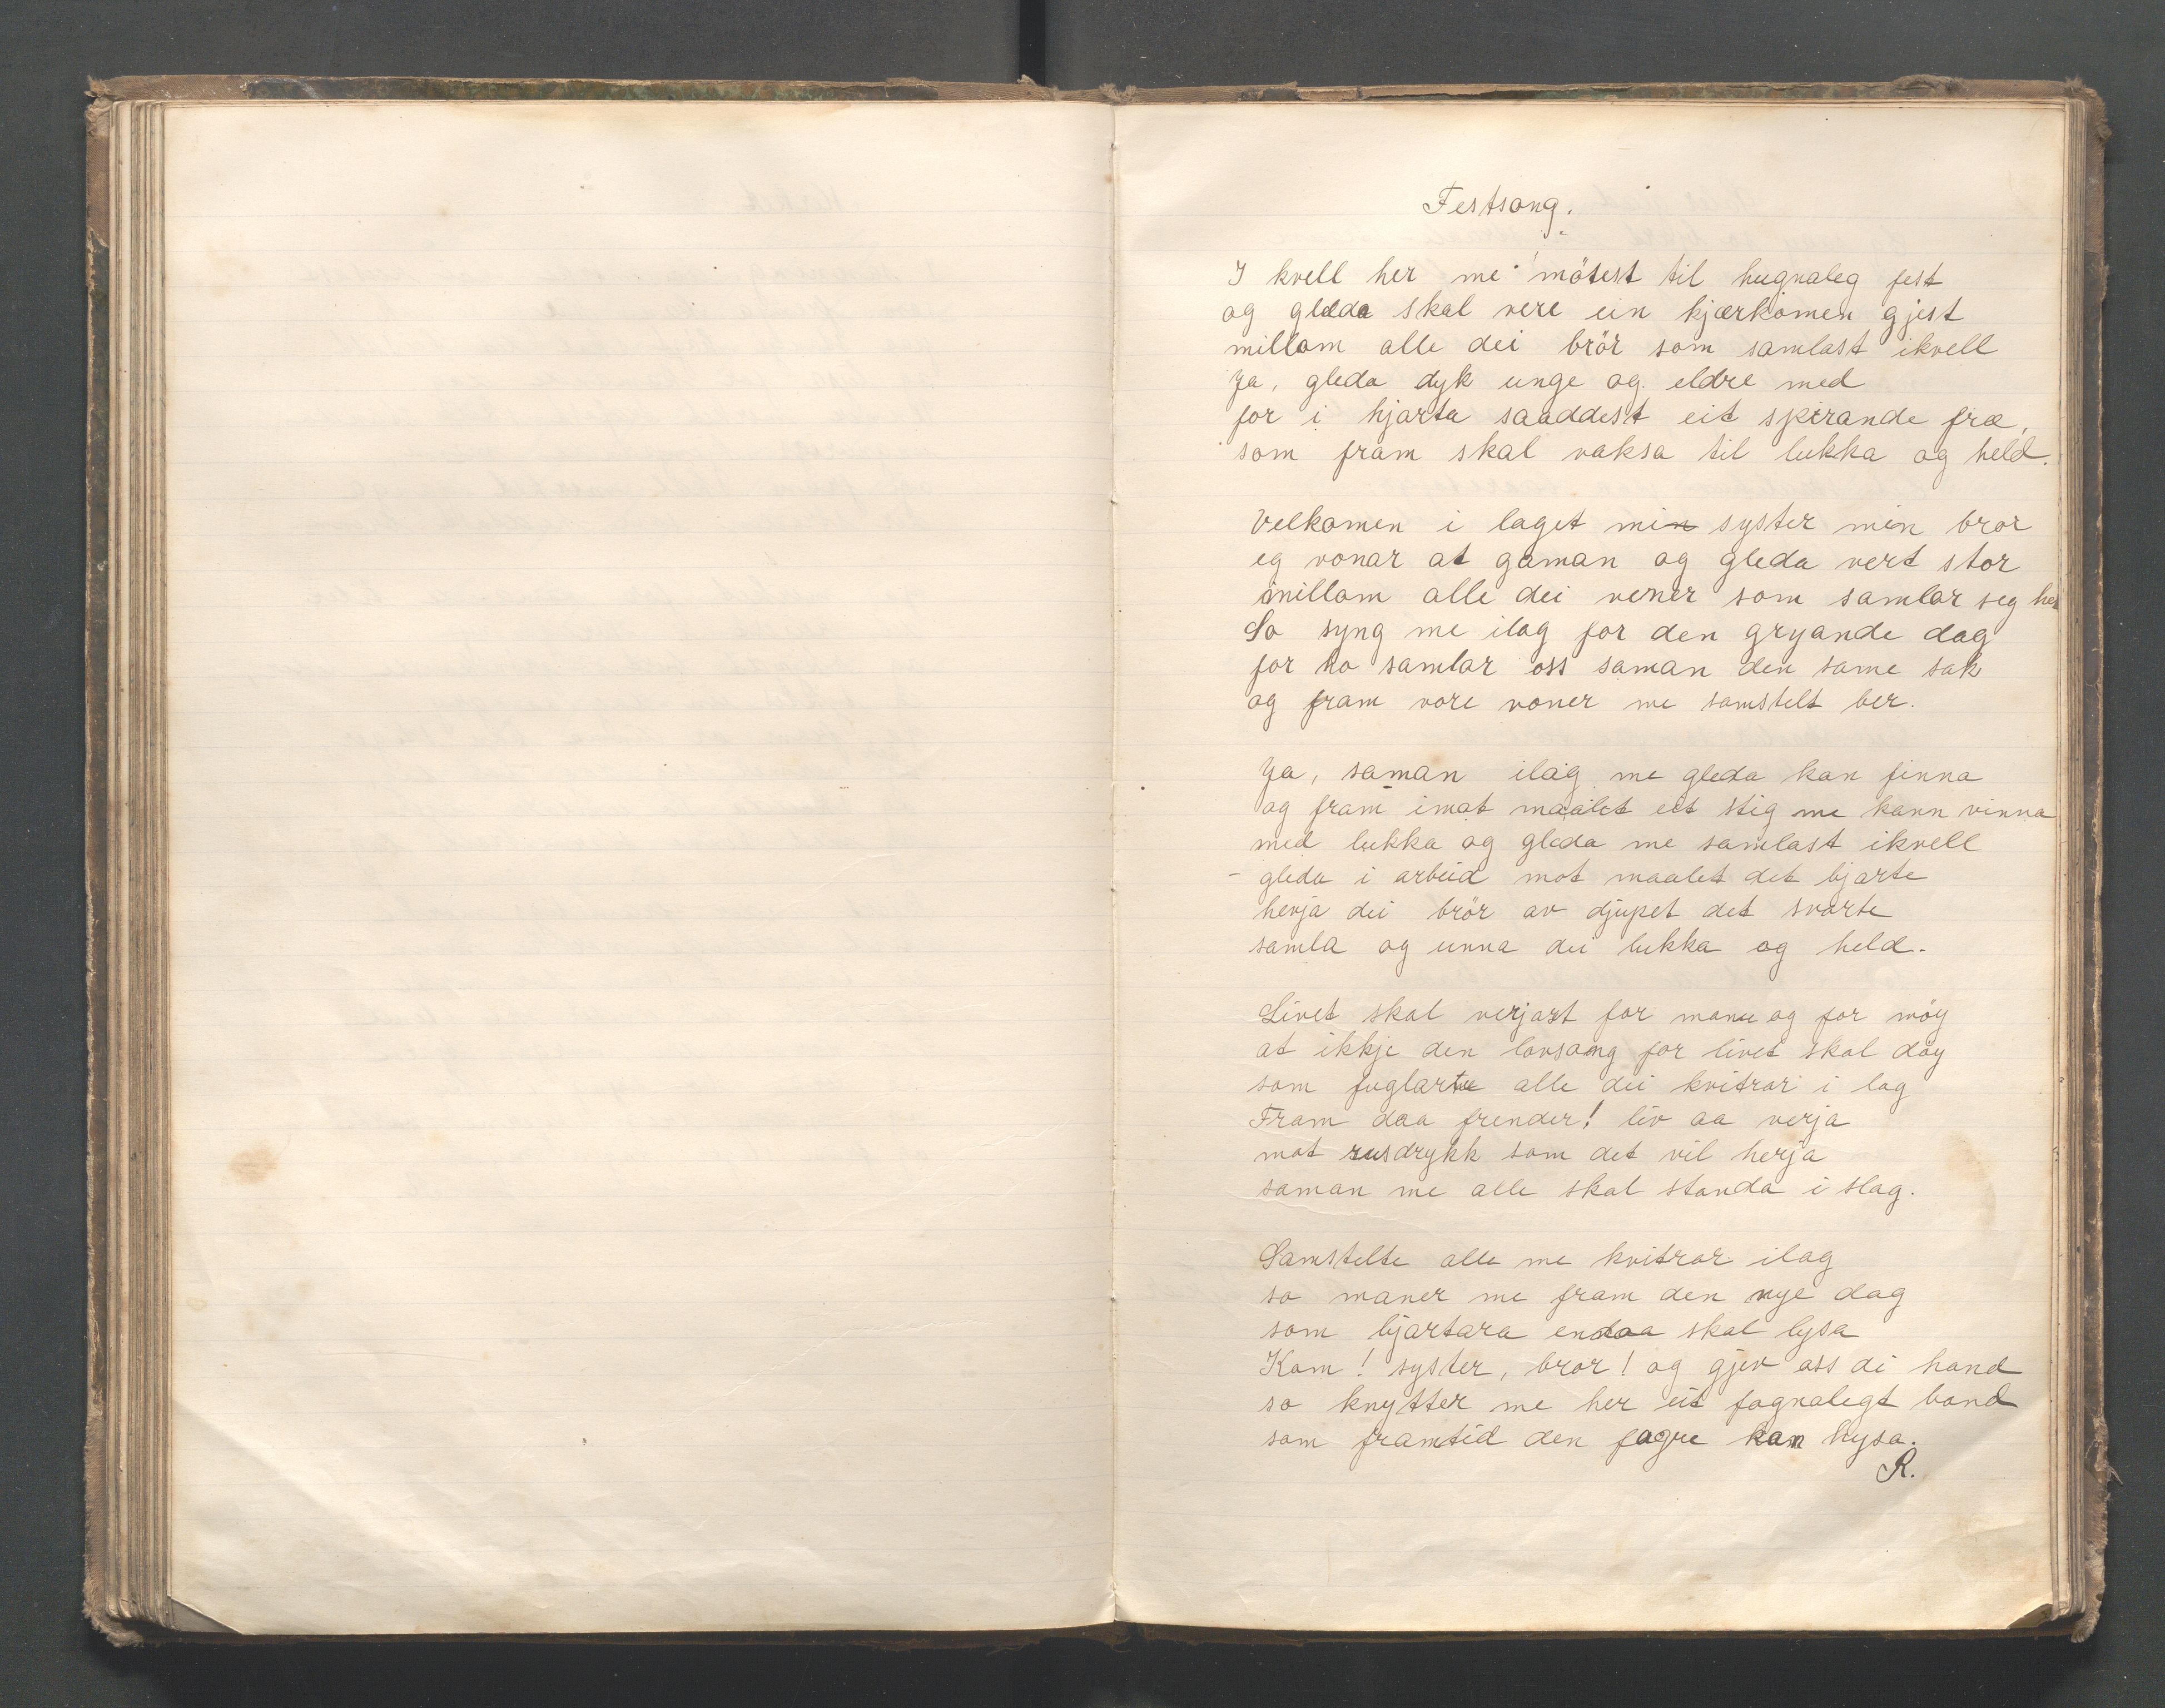 Festsong.
I kvell her me mötest til hugnaleg fest
og gleda skal vere ein kjærkomen gjest
millom alle dei brör som samlast ikvell
Ja, gleda dyk unge og eldre med
for i hjarta saaddest eit spirande fræ,
som fram skal vaksa til lukka og held.
Velkomen i laget min syster min bror
eg vonar at gaman og gleda vert stor
imillom alle dei vener som samlar seg her
So syng me ilag for den gryande dag
for no samlar oss saman den same sak
og fram vore voner me samstelt ber.
Ja, saman ilag me gleda kan finna
og fram imot maalet eit stig me kann vinna
med lukka og gleda me samlast ikvell
- gleda i arbeid mot maalet det bjarte
hevja dei brör av djupet det svarte
samla og unna dei lukka og held.
Livet skal verjast for mann og for möy
at ikkje den lovsong for livet skal döy
som fuglarne alle dei kvitrar i lag
Fram daa frender! liv aa verja
mot rusdrykk som det vil herja
saman me alle skal standa i slag.
Samstelte alle me kvitrar ilag
so maner me fram den nye dag
som bjartara endaa skal lysa
Kom! syster, bror! og gjev oss di hand
so knytter me her eit fagnalegt band
som framtid den fagre kan hysa.
R.